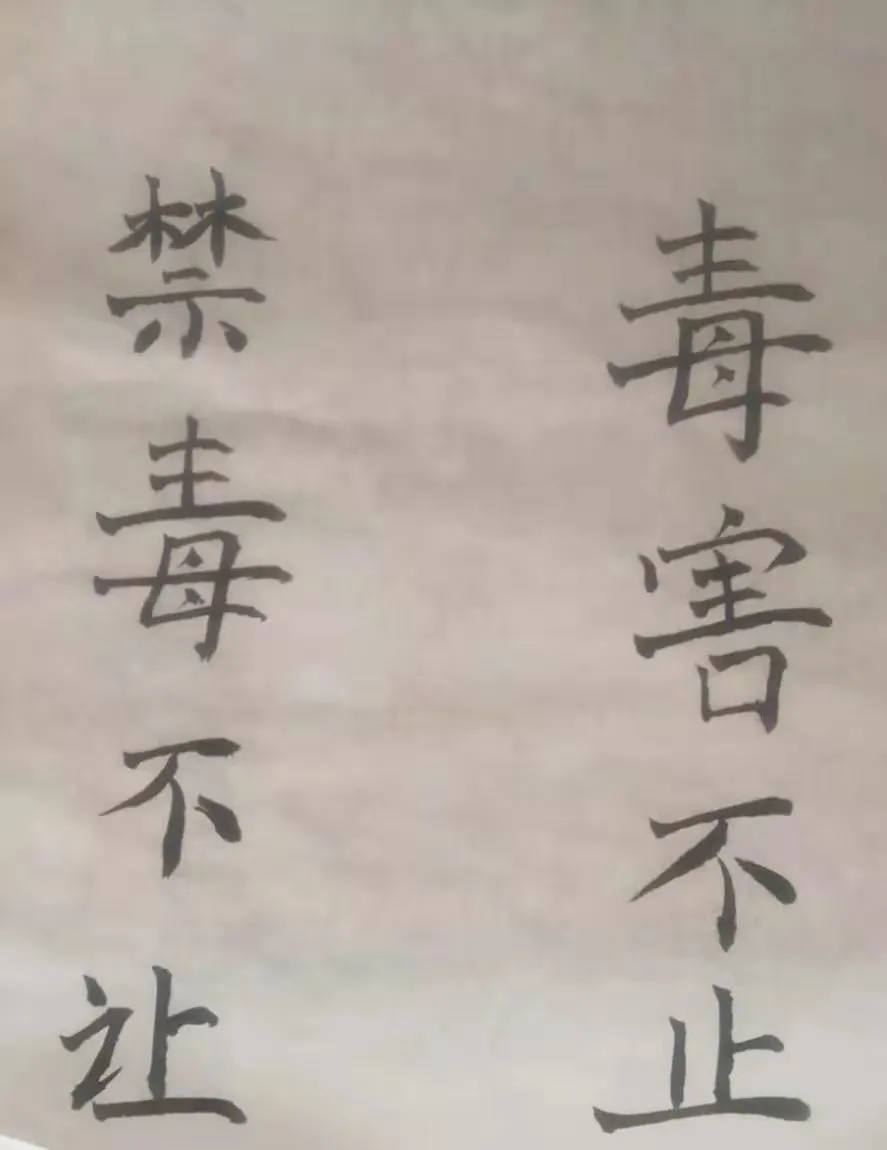 毒害不止
禁毒不让